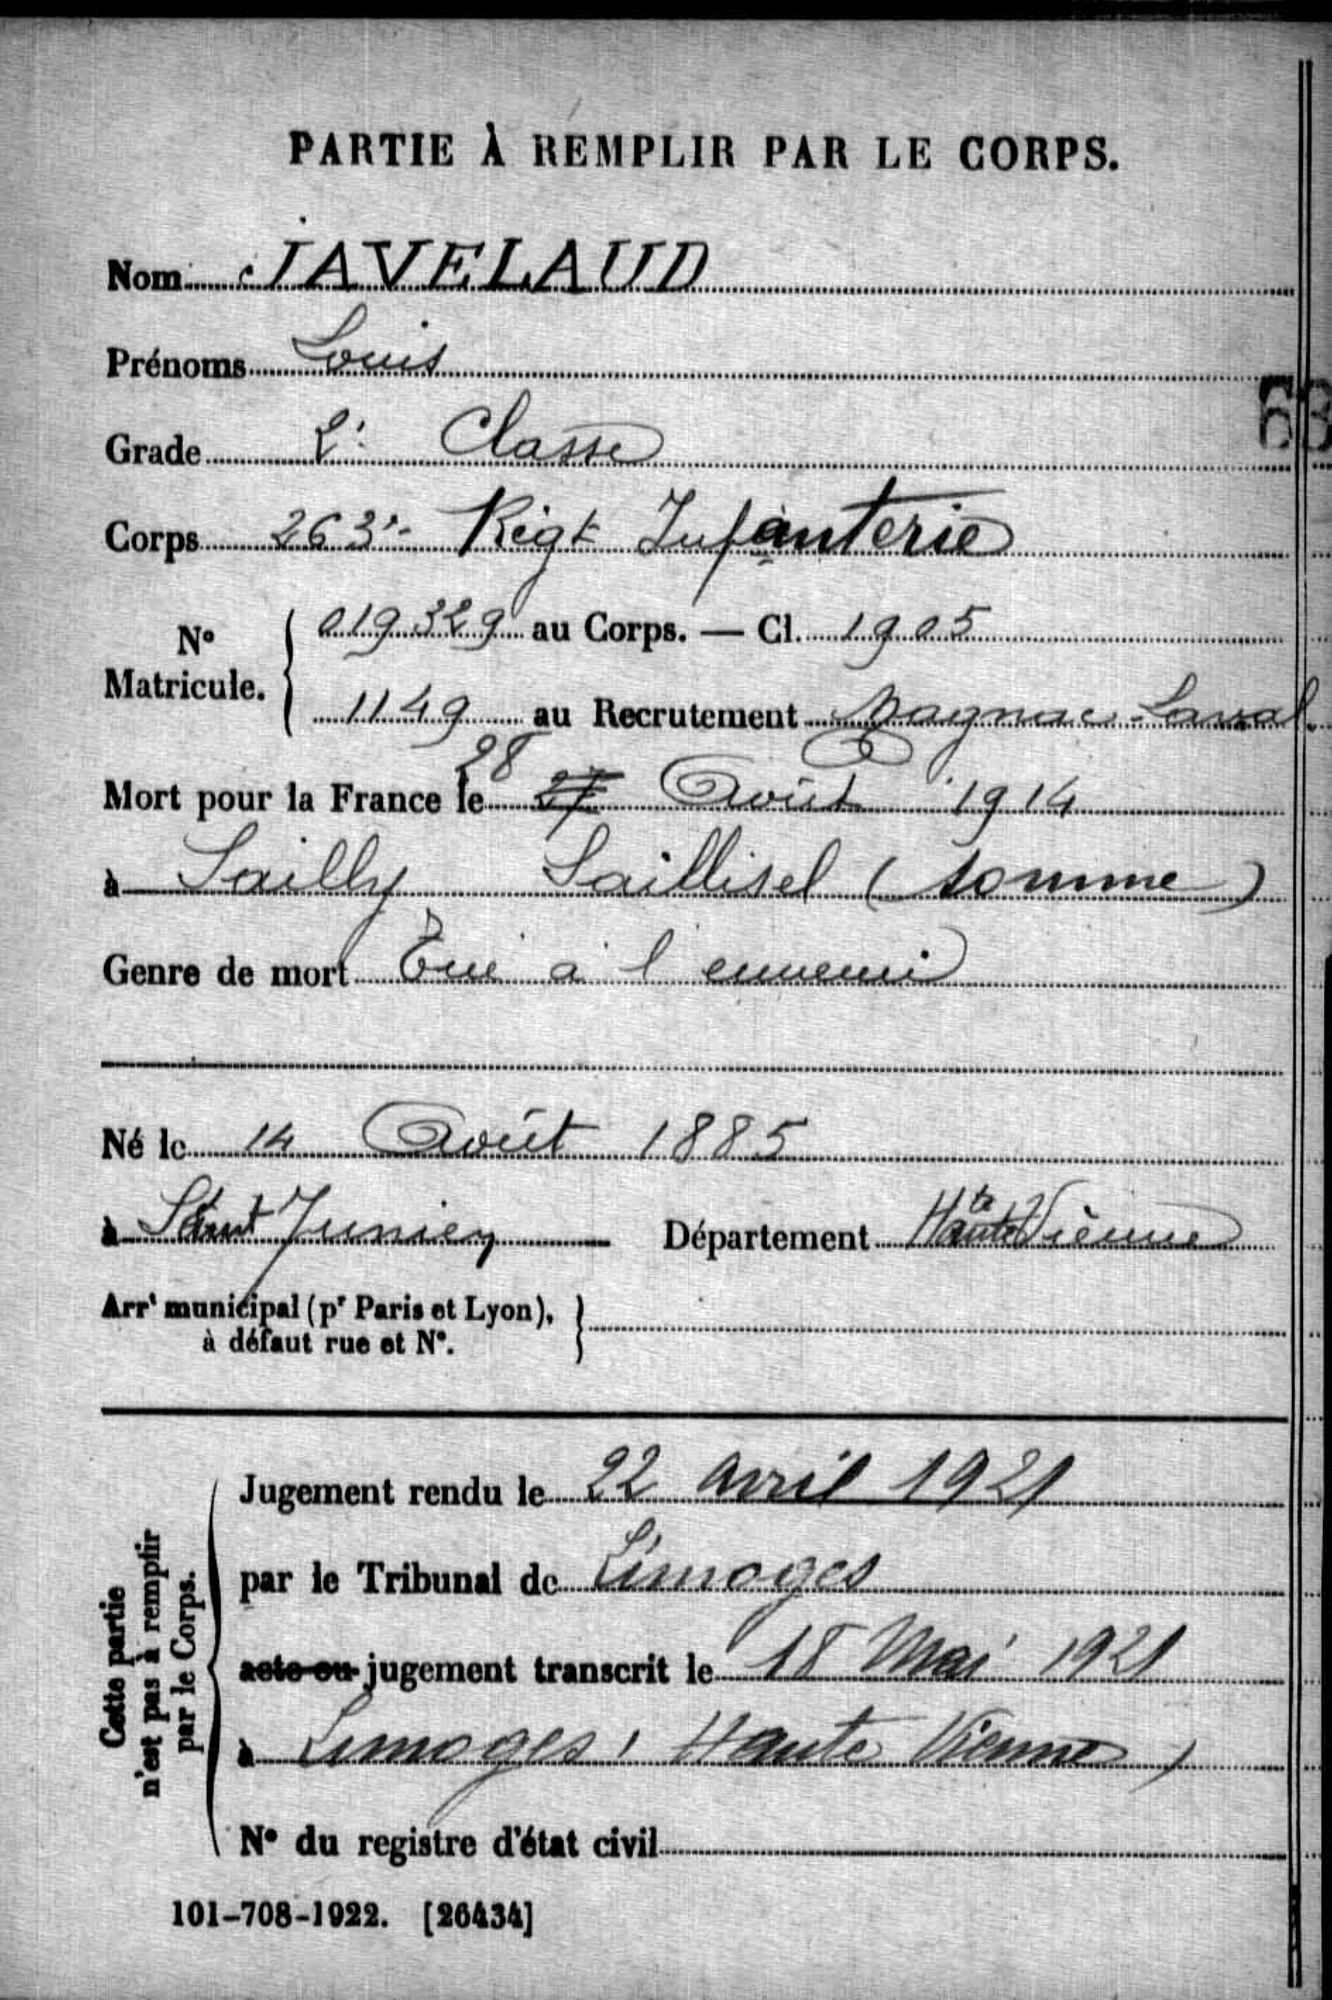 PARTIE À REMPLIR PAR LE CORPS.
Nom JAVELAUD
Prénoms Louis
Grade 2e Classe
Corps 263e Régt Infanterie
No Matricule. { 019329 au Corps. — Cl. 1905
1149 au Recrutement Magnac-Laval
28
Mort pour la France le 27 Août 1914
à Sailly Saillisel (Somme)
Genre de mort Tué à l'ennemi
Né le 14 Août 1885
à Saint Junien Département Hte Vienne
Arrt municipal (pr Paris et Lyon), à défaut rue et No.
Cette partie n'est pas à remplir par le Corps.
Jugement rendu le 22 avril 1921
par le Tribunal de Limoges
acte ou jugement transcrit le 18 Mai 1921
à Limoges (Haute Vienne)
No du registre d'état civil
101-708-1922. [26434]
63